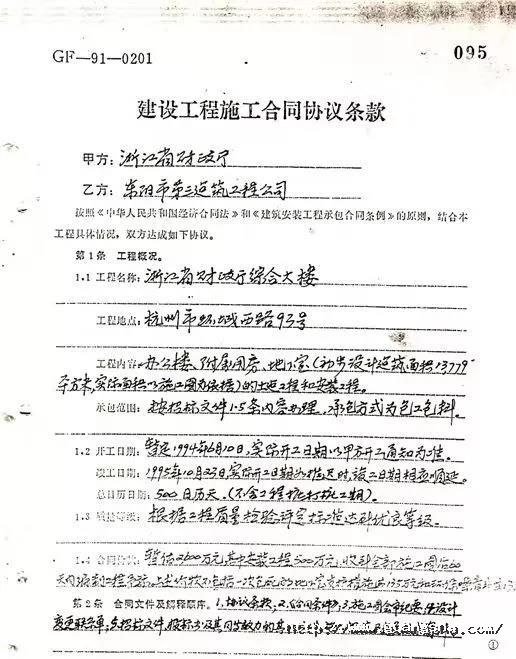 GF—91—0201
095
建设工程施工合同协议条款
甲方：浙江省财政厅
乙方：东阳市第三建筑工程公司
按照《中华人民共和国经济合同法》和《建筑安装工程承包合同条例》的原则，结合本
工程具体情况，双方达成如下协议。
第1条 工程概况。
1.1 工程名称：浙江省财政厅综合大楼
工程地点：杭州市环城西路93号
工程内容：办公楼、附属用房、地下室（初步设计建筑面积13779
平方米，实际面积以施工图为依据）的土建工程和安装工程。
承包范围：按招标文件1.5条内容办理，承包方式为包工包料。
1.2 开工日期：暂定1994年6月10日，实际开工日期以甲方开工通知为准。
竣工日期：1995年10月23日，实际开工日期如推迟时，竣工日期相应顺延。
总日历日期：500日历天（不含工程桩打桩工期）。
1.3 质量等级：根据工程质量检验评定标准达到优良等级。
1.4 合同价款：暂估2600万元，其中安装工程500万元，收到全部施工图后60
第2条 合同文件及解释顺序。1.协议条款，2.合同条件，3.施工图会审纪要，设计
变更联系单，
①